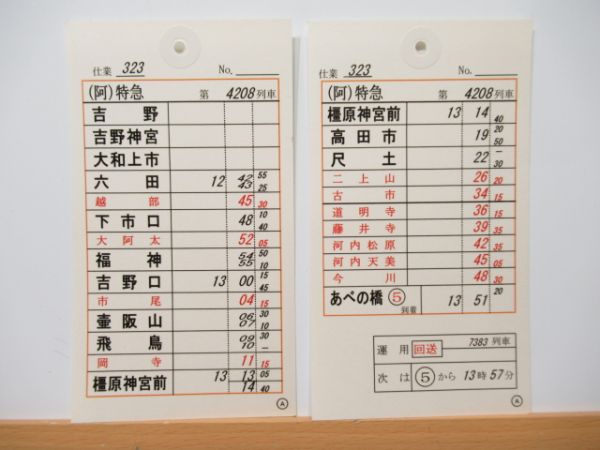 仕業 323 No.
(阿)特急 第 4208 列車
吉野
吉野神宮
大和上市
六田 12 42 55
43 25
越部 45 30
下市口 48 10
40
大阿太 52 05
福神 54 50
55 10
吉野口 13 00 15
45
市尾 04 15
壷阪山 06 30
07 10
飛鳥 09 30
10 −
岡寺 11 15
橿原神宮前 13 13 05
14 40
A
仕業 323 No.
(阿)特急 第 4208 列車
橿原神宮前 13 14 40
高田市 19 20
50
尺土 22 −
30
二上山 26 20
古市 34 15
道明寺 36 15
藤井寺 39 35
河内松原 42 35
河内天美 45 05
今川 48 30
あべの橋 ⑤ 到着 13 51 20
運用 回送 7383 列車
次は ⑤ から 13時57分
A